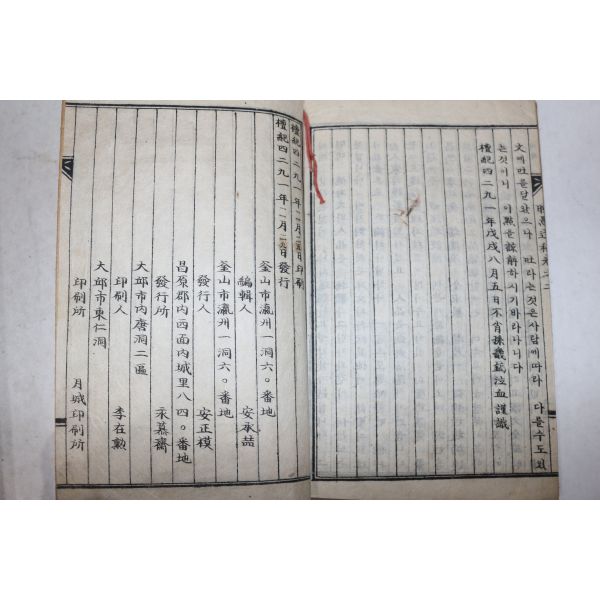 文에 吐를 달았으나 吐라는 것은 사람에 따라 다를 수도 있
는 것이니 이 點을 諒解하시기 바라나니다
檀紀四二九一年戊戌八月五日不肖孫 泣血謹識
檀紀四二九一年 月 日印刷
檀紀四二九一年 月 日發行
釜山市瀛州一洞六〇番地
編輯人 安承喆
釜山市瀛州一洞六〇番地
發行人 安正模
昌原郡內西面內城里八四〇番地
發行所 永慕齋
大邱市內唐洞二區
印刷人 李在勲
大邱市東仁洞
印刷所 月城印刷所